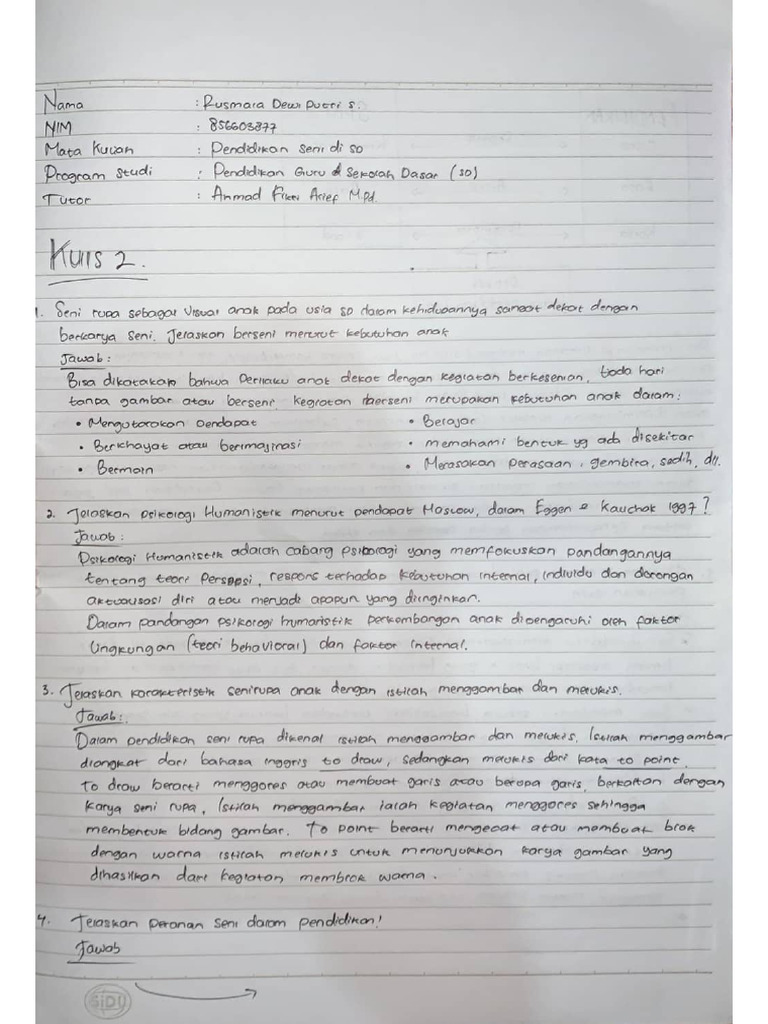 Nama : Rusmala Dewi Putri S.
NIM : 856603877
Mata Kuliah : Pendidikan Seni di SD
Program Studi : Pendidikan Guru Sekolah Dasar (SD)
Tutor : Ahmad Fikri Arief M.Pd.
Kuis 2.
1. Seni rupa sebagai visual anak pada usia SD dalam kehidupannya sangat dekat dengan
berkarya seni. Jelaskan berseni menurut kebutuhan anak
Jawab :
Bisa dikatakan bahwa perilaku anak dekat dengan kegiatan berkesenian, tiada hari
tanpa gambar atau berseni. kegiatan berseni merupakan kebutuhan anak dalam :
• Mengutarakan Pendapat • Belajar
• Berkhayal atau berimajinasi • memahami bentuk yg ada disekitar
• Bermain • Merasakan perasaan : gembira, sedih, dll.
2. Jelaskan Psikologi Humanistik menurut pendapat Maslow, dalam Eggen & Kauchak 1997 ?
Jawab :
Psikologi Humanistik adalah cabang psikologi yang memfokuskan pandangannya
tentang teori Persepsi, respons terhadap kebutuhan internal, individu dan dorongan
aktualisasi diri atau menjadi apapun yang diinginkan.
Dalam pandangan psikologi humanistik perkembangan anak dipengaruhi oleh faktor
lingkungan (teori behavioral) dan faktor internal.
3. Jelaskan karakteristik senirupa anak dengan istilah menggambar dan melukis.
Jawab :
Dalam pendidikan seni rupa dikenal istilah menggambar dan melukis. Istilah menggambar
diangkat dari bahasa inggris to draw, sedangkan melukis dari kata to paint.
To draw berarti menggores atau membuat garis atau berupa garis, berkaitan dengan
karya seni rupa, Istilah menggambar ialah kegiatan menggores sehingga
membentuk bidang gambar. To paint berarti mengecat atau membuat blok
dengan warna istilah melukis untuk menunjukkan karya gambar yang
dihasilkan dari kegiatan memblok warna.
4. Jelaskan peranan seni dalam pendidikan!
Jawab
SiDU